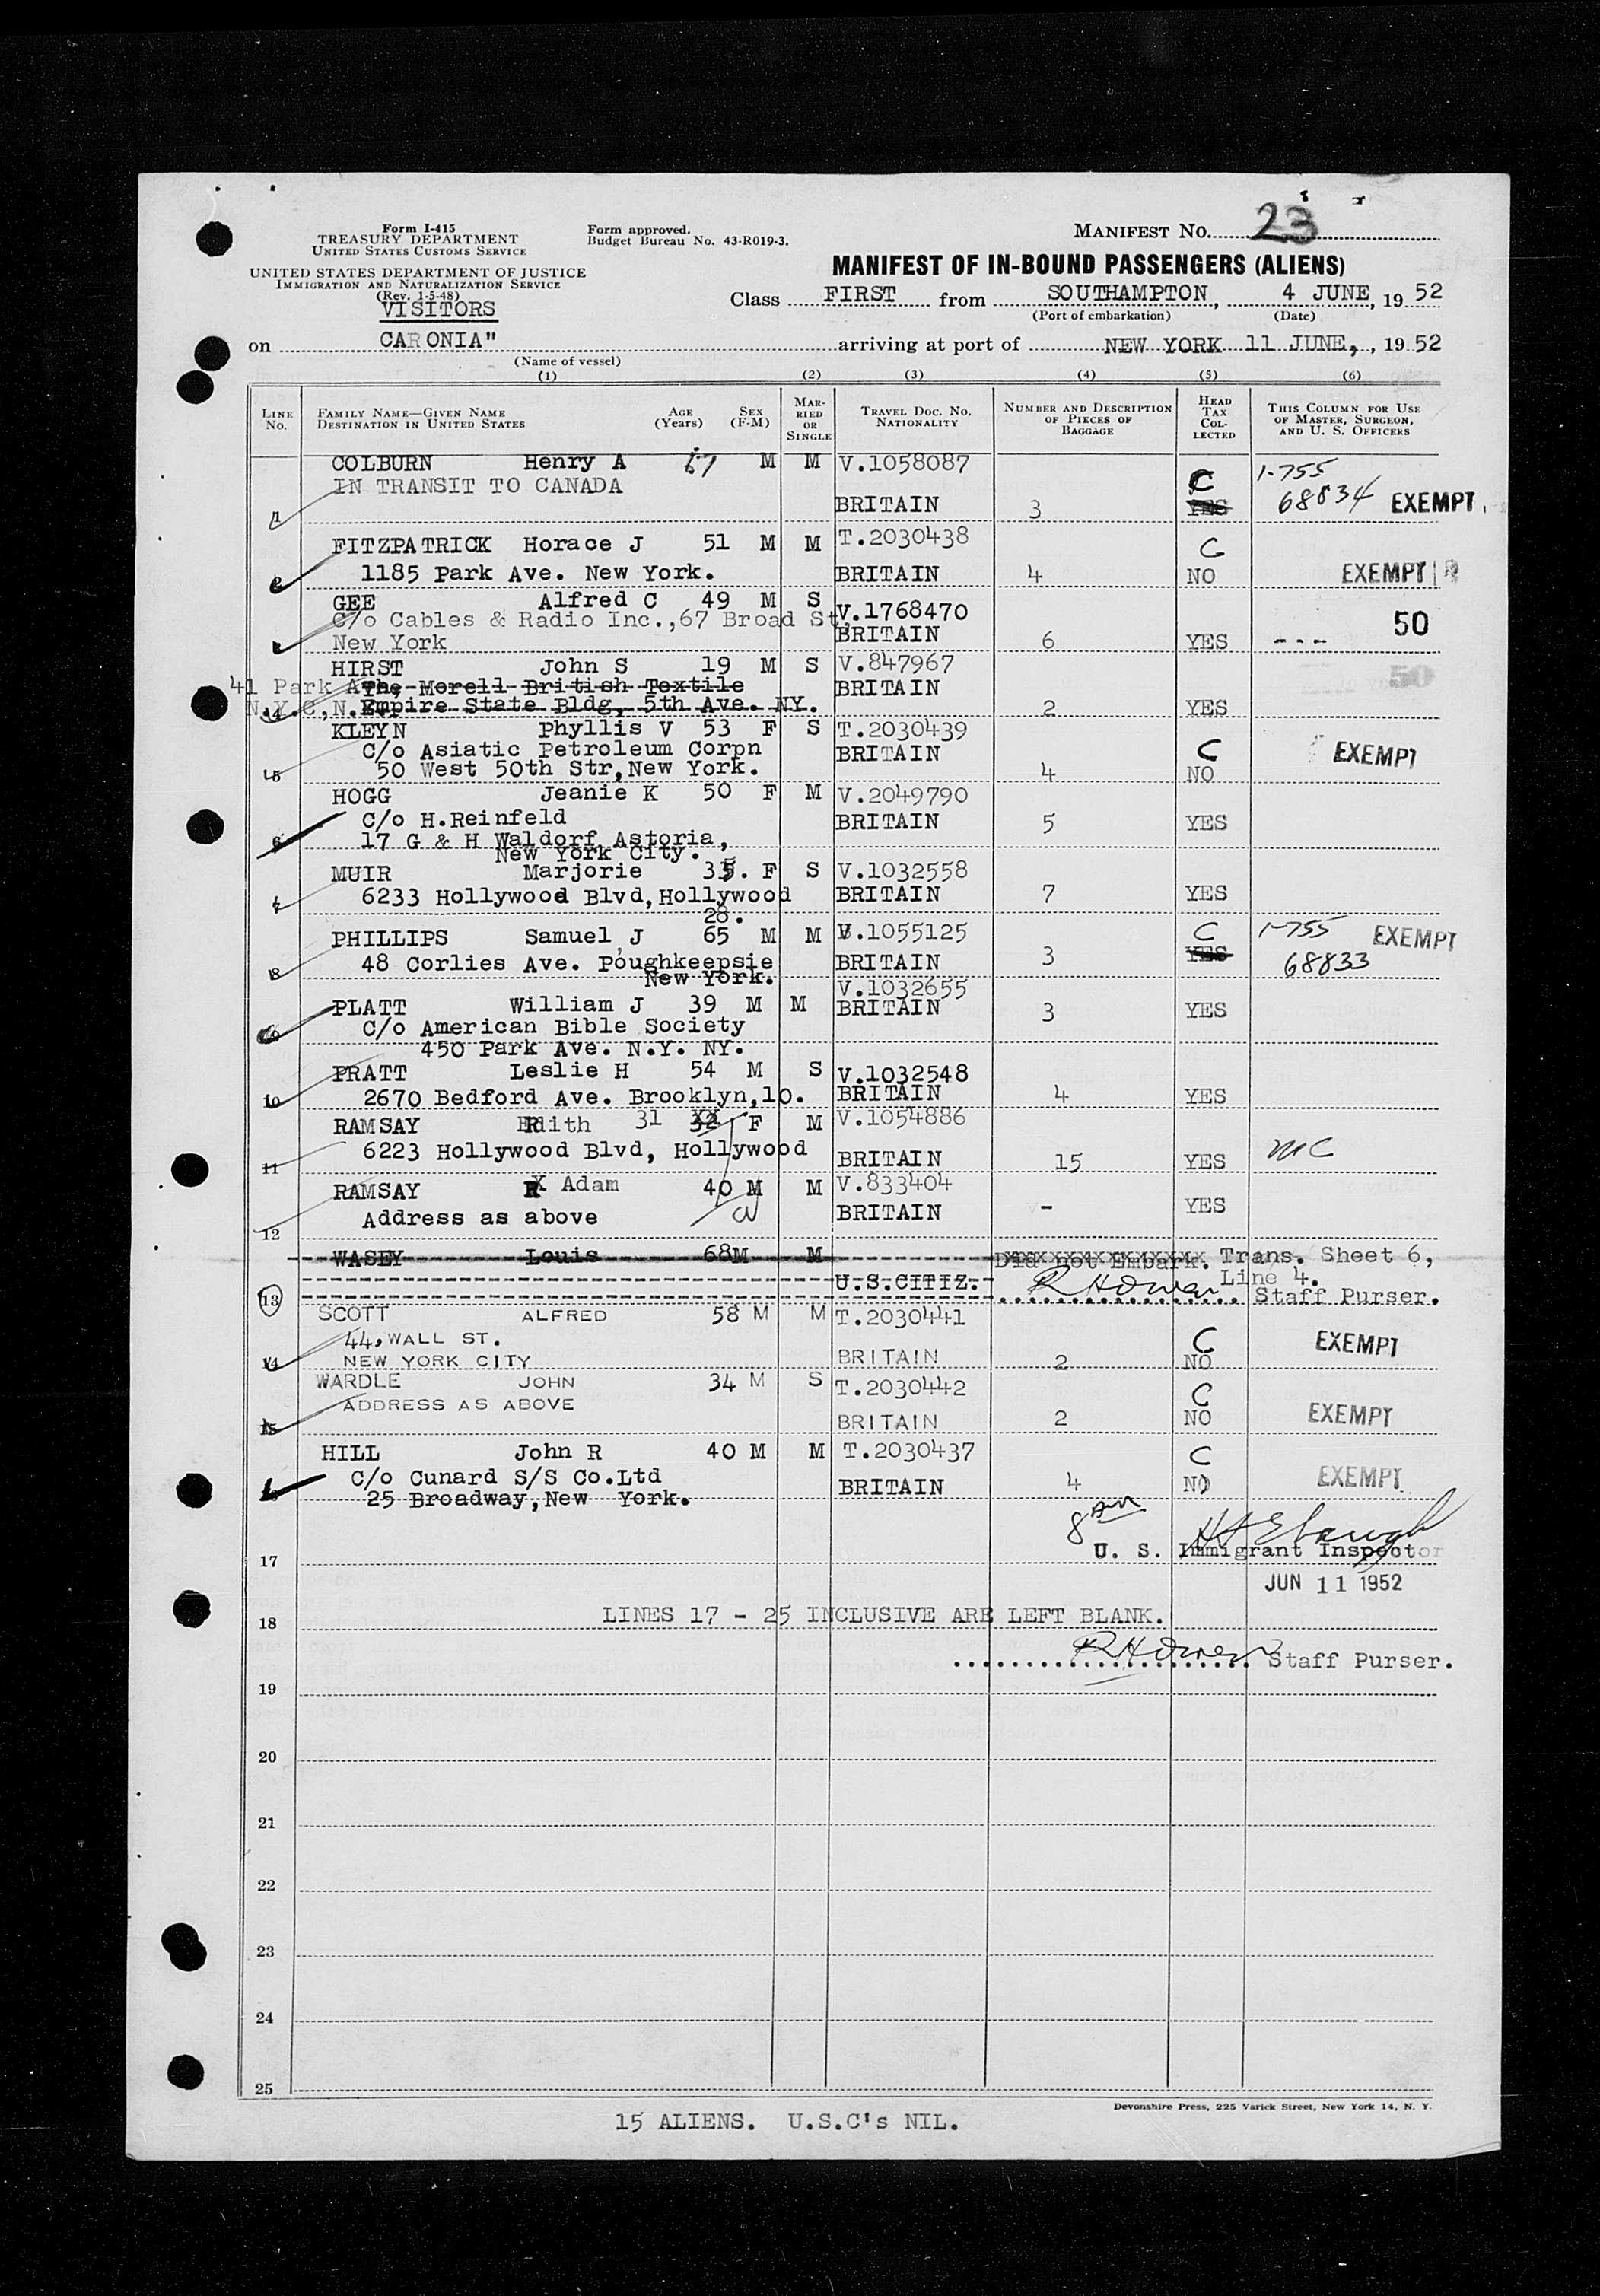 Form I-415
TREASURY DEPARTMENT
UNITED STATES CUSTOMS SERVICE
UNITED STATES DEPARTMENT OF JUSTICE
IMMIGRATION AND NATURALIZATION SERVICE
(Rev. 1-5-48)
VISITORS
Form approved.
Budget Bureau No. 43-R019-3.
MANIFEST NO. 23
MANIFEST OF IN-BOUND PASSENGERS (ALIENS)
Class FIRST from SOUTHAMPTON, 4 JUNE, 19 52
(Port of embarkation) (Date)
on CARONIA" arriving at port of NEW YORK 11 JUNE, , 19 52
(Name of vessel)
(1) (2) (3) (4) (5) (6)
LINE No. FAMILY NAME—GIVEN NAME DESTINATION IN UNITED STATES AGE (Years) SEX (F-M) MARRIED OR SINGLE TRAVEL DOC. NO. NATIONALITY NUMBER AND DESCRIPTION OF PIECES OF BAGGAGE HEAD TAX COLLECTED THIS COLUMN FOR USE OF MASTER, SURGEON, AND U. S. OFFICERS
COLBURN Henry A 67 M M V.1058087 C 1-755
IN TRANSIT TO CANADA
1 BRITAIN 3 YES 68834 EXEMPT
FITZPATRICK Horace J 51 M M T.2030438 C
2 1185 Park Ave. New York. BRITAIN 4 NO EXEMPT
GEE Alfred C 49 M S V.1768470 50
C/o Cables & Radio Inc.,67 Broad St,
3 New York BRITAIN 6 YES ---
HIRST John S 19 M S V.847967 50
41 Park Ave, The Morell British Textile BRITAIN
4 N.Y.C,N.Y. Empire State Bldg, 5th Ave. NY. 2 YES
KLEYN Phyllis V 53 F S T.2030439
C/o Asiatic Petroleum Corpn BRITAIN C EXEMPT
5 50 West 50th Str,New York. 4 NO
HOGG Jeanie K 50 F M V.2049790
C/o H.Reinfeld BRITAIN 5 YES
6 17 G & H Waldorf Astoria,
New York City.
MUIR Marjorie 35. F S V.1032558
7 6233 Hollywood Blvd,Hollywood BRITAIN 7 YES
28.
PHILLIPS Samuel J 65 M M V.1055125 C 1-755 EXEMPT
8 48 Corlies Ave. Poughkeepsie BRITAIN 3 YES 68833
New York.
V.1032655
9 PLATT William J 39 M M BRITAIN 3 YES
C/o American Bible Society
450 Park Ave. N.Y. NY.
PRATT Leslie H 54 M S V.1032548
10 2670 Bedford Ave. Brooklyn,10. BRITAIN 4 YES
RAMSAY Edith 31 32 F M V.1054886
11 6223 Hollywood Blvd, Hollywood BRITAIN 15 YES
RAMSAY Adam 40 M M V.833404
12 Address as above BRITAIN - YES
WASEY Louis 68M M Did not Embark. Trans. Sheet 6,
U.S.CITIZ. Line 4.
13 R H Owen Staff Purser.
SCOTT ALFRED 58 M M T.2030441
44, WALL ST. C EXEMPT
14 NEW YORK CITY BRITAIN 2 NO
WARDLE JOHN 34 M S T.2030442
ADDRESS AS ABOVE C EXEMPT
15 BRITAIN 2 NO
HILL John R 40 M M T.2030437 C
C/o Cunard S/S Co.Ltd BRITAIN 4 NO EXEMPT
25 Broadway,New York.
8 AM
U. S. Immigrant Inspector
17
JUN 11 1952
18 LINES 17 - 25 INCLUSIVE ARE LEFT BLANK.
R H Owen Staff Purser.
19
20
21
22
23
24
25
Devonshire Press, 225 Varick Street, New York 14, N. Y.
15 ALIENS. U.S.C's NIL.